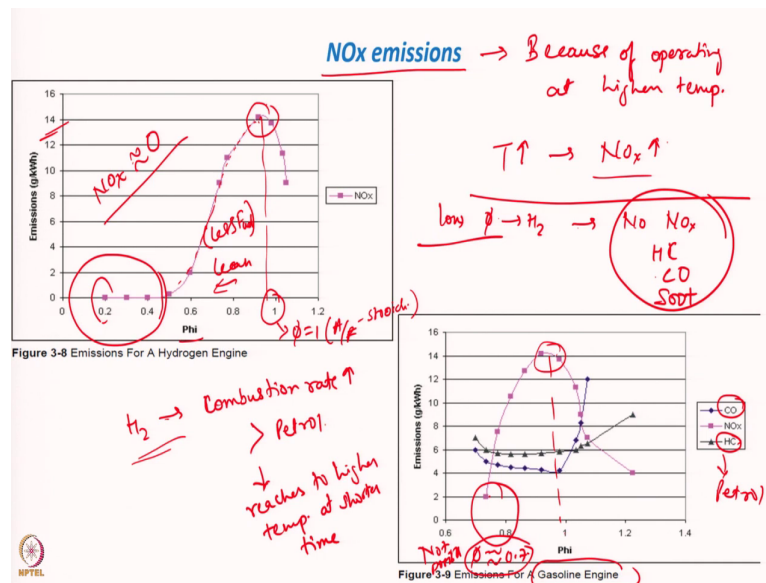 NOx emissions → Because of operating
at higher temp.
T↑ → NOx↑
low φ → H2 → No NOx
HC
CO
Soot
16
14
12
10
8
6
4
2
0
0 0.2 0.4 0.6 0.8 1 1.2
Emissions (g/kWh)
Phi
NOx
NOx ≈ 0
(less fuel)
lean
φ=1 (A/F - stoichi.)
Figure 3-8 Emissions For A Hydrogen Engine
H2 → Combustion rate ↑
> Petrol
↓
reaches to higher
temp. at shorter
time
16
14
12
10
8
6
4
2
0
0.6 0.8 1 1.2 1.4
Emissions (g/kWh)
Phi
CO
NOx
HC
↓
Petrol
Not
φ ≈ 0.7
Figure 3-9 Emissions For A Gasoline Engine
NPTEL